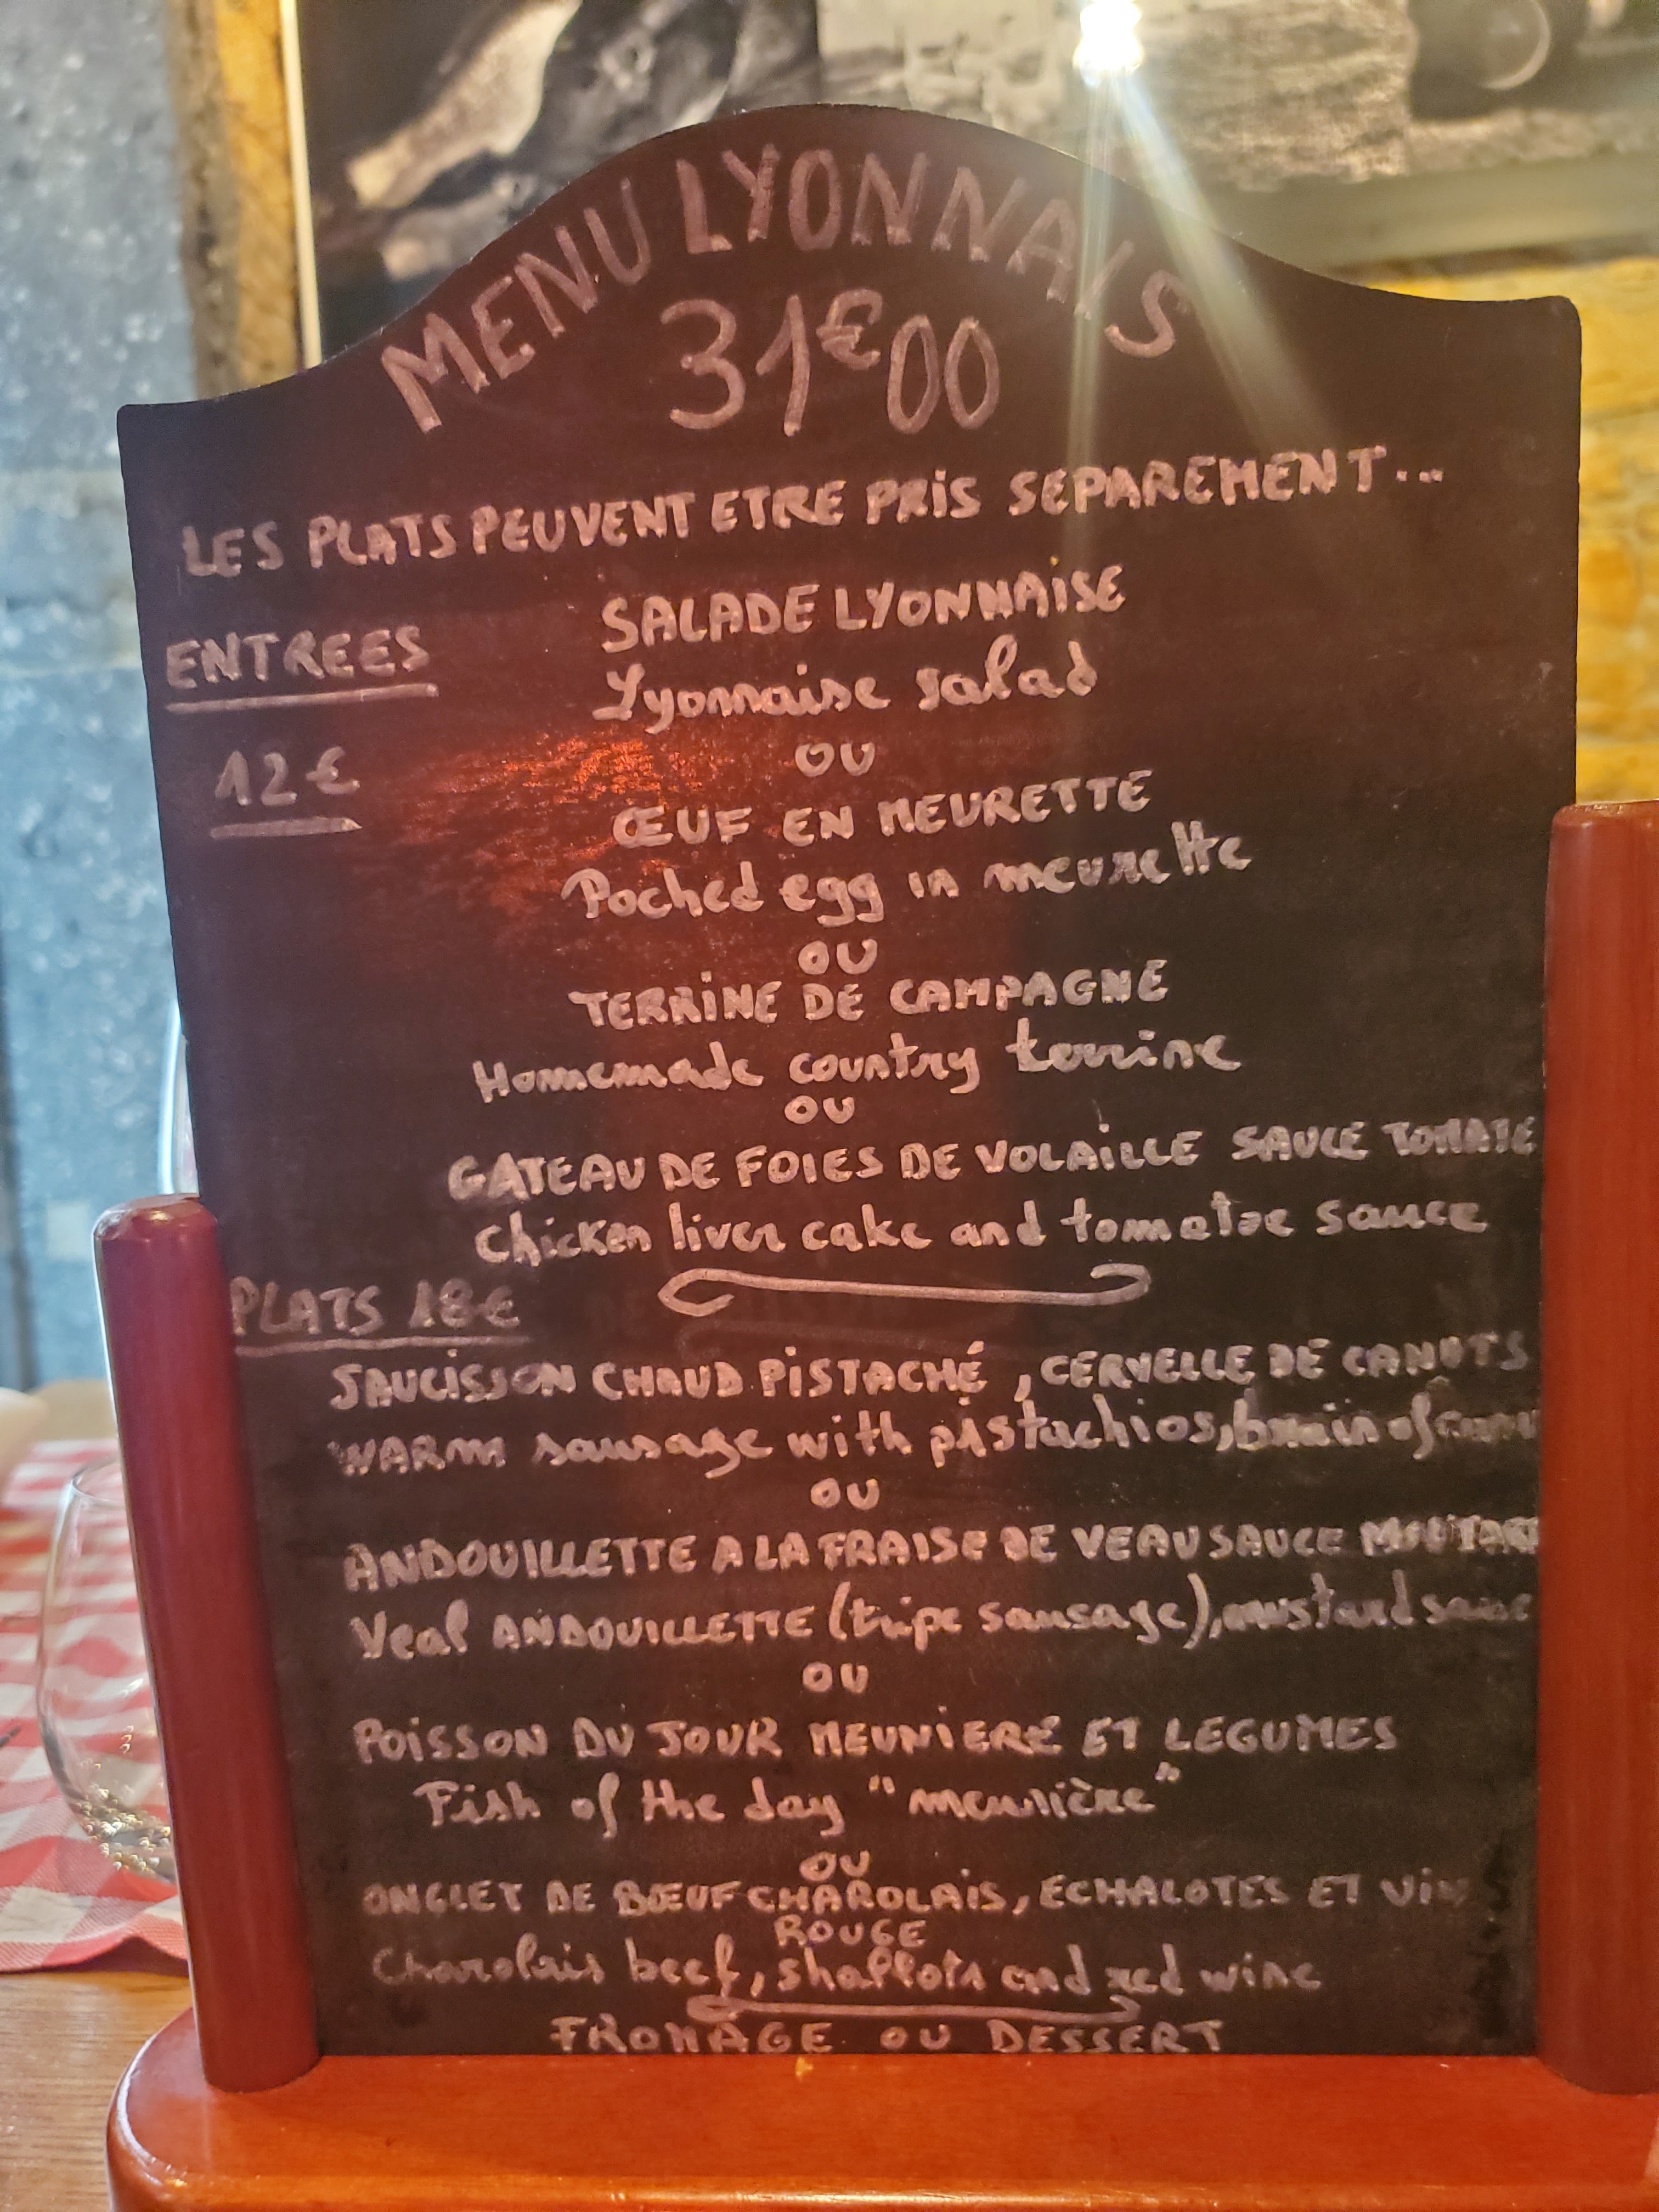 MENU LYONNAIS
31€00
LES PLATS PEUVENT ETRE PRIS SEPAREMENT...
ENTREES
12€
SALADE LYONNAISE
Lyonnaise salad
OU
ŒUF EN MEURETTE
Poched egg in meurette
OU
TERRINE DE CAMPAGNE
Homemade country terrine
OU
GATEAU DE FOIES DE VOLAILLE SAUCE TOMATE
Chicken liver cake and tomatoe sauce
PLATS 18€
SAUCISSON CHAUD PISTACHÉ, CERVELLE DE CANUTS
WARM sausage with pistachios, brain of
OU
ANDOUILLETTE A LA FRAISE DE VEAU SAUCE MOUTARD
Veal ANDOUILLETTE (tripe sausage), mustard sauce
OU
POISSON DU JOUR MEUNIERE ET LEGUMES
Fish of the day "meunière"
OU
ONGLET DE BŒUF CHAROLAIS, ECHALOTES ET VIN
ROUGE
Charolais beef, shallots and red wine
FROMAGE OU DESSERT